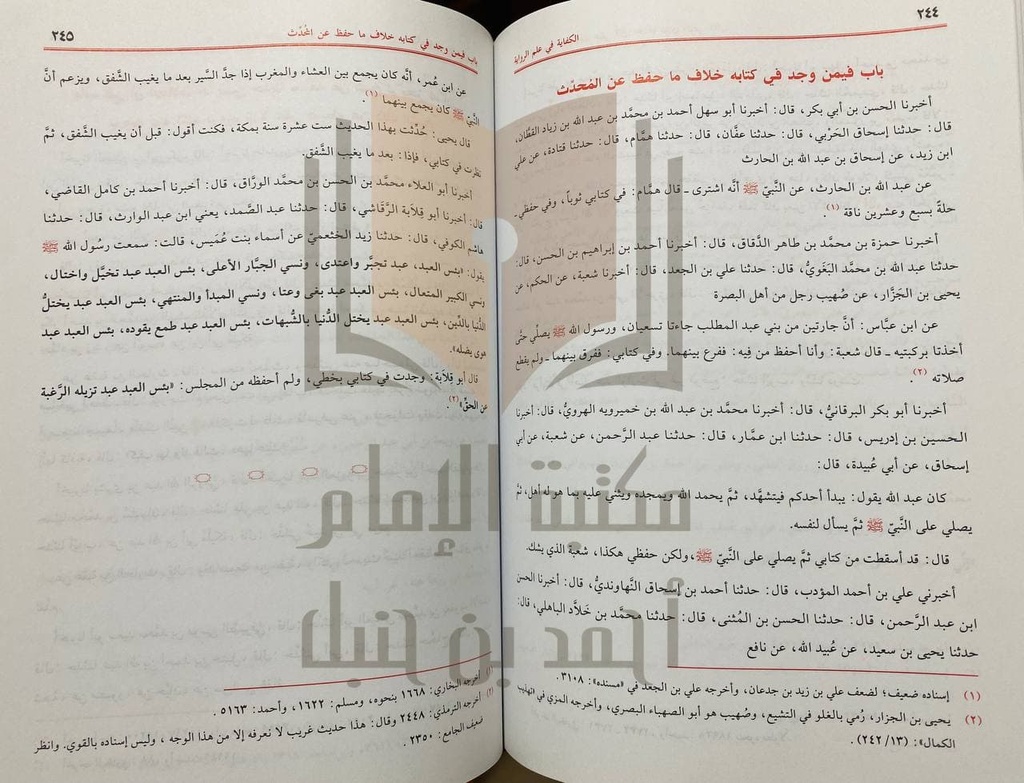 ٢٤٤
الكفاية في علم الرواية
باب فيمن وجد في كتابه خلاف ما حفظ عن المُحدّث
أخبرنا الحسن بن أبي بكر، قال: أخبرنا أبو سهل أحمد بن محمَّد بن عبد الله بن زياد القطَّان،
قال: حدثنا إسحاق الحَرْبي، قال: حدثنا عفَّان، قال: حدثنا همَّام، قال: حدثنا قتادة، عن علي
ابن زيد، عن إسحاق بن عبد الله بن الحارث
عن عبد الله بن الحارث، عن النَّبيّ ﷺ أنَّه اشترى ـ قال همَّام: في كتابي ثوباً، وفي حفظي ـ
حلةً بسبع وعشرين ناقة (١).
أخبرنا حمزة بن محمَّد بن طاهر الدَّقاق، قال: أخبرنا أحمد بن إبراهيم بن الحسن، قال:
حدثنا عبد الله بن محمَّد البَغَويُّ، قال: حدثنا علي بن الجعد، قال: أخبرنا شعبة، عن الحكم، عن
يحيى بن الجَزَّار، عن صُهيب رجل من أهل البصرة
عن ابن عبَّاس: أنَّ جارتين من بني عبد المطلب جاءتا تسعيان، ورسول الله ﷺ يصلّي حتَّى
أخذتا بركبتيه ـ قال شعبة: وأنا أحفظ من فِيه: ففرع بينهما. وفي كتابي: ففرق بينهما ـ ولم يقطع
صلاته (٢).
أخبرنا أبو بكر البرقانيُّ، قال: أخبرنا محمَّد بن عبد الله بن خميرويه الهرويُّ، قال: أخبرنا
الحسين بن إدريس، قال: حدثنا ابن عمَّار، قال: حدثنا عبد الرَّحمن، عن شعبة، عن أبي
إسحاق، عن أبي عُبيدة، قال:
كان عبد الله يقول: يبدأ أحدكم فيتشهَّد، ثمَّ يحمد الله ويمجده ويثني عليه بما هو له أهل، ثمَّ
يصلي على النَّبيّ ﷺ ثمَّ يسأل لنفسه.
قال: قد أسقطت من كتابي ثمَّ يصلي على النَّبيّ ﷺ، ولكن حفظي هكذا، شعبة الذي يشك.
أخبرني علي بن أحمد المؤدب، قال: حدثنا أحمد بن إسحاق النَّهاونديُّ، قال: أخبرنا الحسن
ابن عبد الرَّحمن، قال: حدثنا الحسن بن المُثنى، قال: حدثنا محمَّد بن خلَّاد الباهلي، قال:
حدثنا يحيى بن سعيد، عن عُبيد الله، عن نافع
(١) إسناده ضعيف؛ لضعف علي بن زيد بن جدعان، وأخرجه علي بن الجعد في «مسنده»: ٣١٠٨.
(٢) يحيى بن الجزار، رُمي بالغلو في التشيع، وصُهيب هو أبو الصهباء البصري، وأخرجه المزي في «تهذيب
الكمال»: (٢٤٢/١٣).
باب فيمن وجد في كتابه خلاف ما حفظ عن المُحدّث
٢٤٥
عن ابن عُمر، أنَّه كان يجمع بين العشاء والمغرب إذا جدَّ السَّير بعد ما يغيب الشَّفق، ويزعم أنَّ
النَّبيّ ﷺ كان يجمع بينهما (١).
قال يحيى: حُدِّثت بهذا الحديث ست عشرة سنة بمكة، فكنت أقول: قبل أن يغيب الشَّفق، ثمَّ
نظرت في كتابي، فإذا: بعد ما يغيب الشَّفق.
أخبرنا أبو العلاء محمَّد بن الحسن بن محمَّد الورَّاق، قال: أخبرنا أحمد بن كامل القاضي،
قال: أخبرنا أبو قِلَابة الرَّقاشي، قال: حدثنا عبد الصَّمد، يعني ابن عبد الوارث، قال: حدثنا
هاشم الكوفي، قال: حدثنا زيد الخثعميّ عن أسماء بنت عُميس، قالت: سمعت رسُول الله ﷺ
يقول: «بئس العبد، عبد تجبَّر واعتدى، ونسي الجبَّار الأعلى، بئس العبد عبد تخيَّل واختال،
ونسي الكبير المتعال، بئس العبد عبد بغى وعتا، ونسي المبدأ والمنتهي، بئس العبد عبد يختلُّ
الدُّنيا بالدِّين، بئس العبد عبد يختل الدُّنيا بالشُّبهات، بئس العبد عبد طمع يقوده، بئس العبد عبد
هوى يضله».
قال أبو قِلابة: وجدت في كتابي بخطي، ولم أحفظه من المجلس: «بئس العبد عبد تزيله الرَّغبة
عن الحقِّ» (٢).
(١) أخرجه البخاري: ١٦٦٨ بنحوه، ومسلم: ١٦٢٢، وأحمد: ٥١٦٣.
(٢) أخرجه الترمذي: ٢٤٤٨ وقال: هذا حديث غريب لا نعرفه إلا من هذا الوجه ، وليس إسناده بالقوي. وانظر
ضعيف الجامع: ٢٣٥٠ .
مكتبة الإمام
أحمد بن حنبل